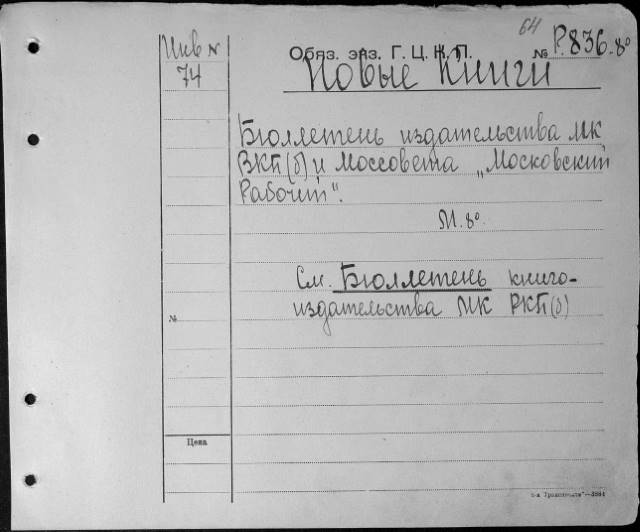 64
Инв N
Обяз. экз. Г. Ц. К. П.
№ Р.836.8°
74
Новые Книги
Бюллетень издательства МК
ВКП(б) и Моссовета „Московский
Рабочий".
М. 8°.
См. Бюллетень книго-
издательства МК РКП(б)
№
Цена